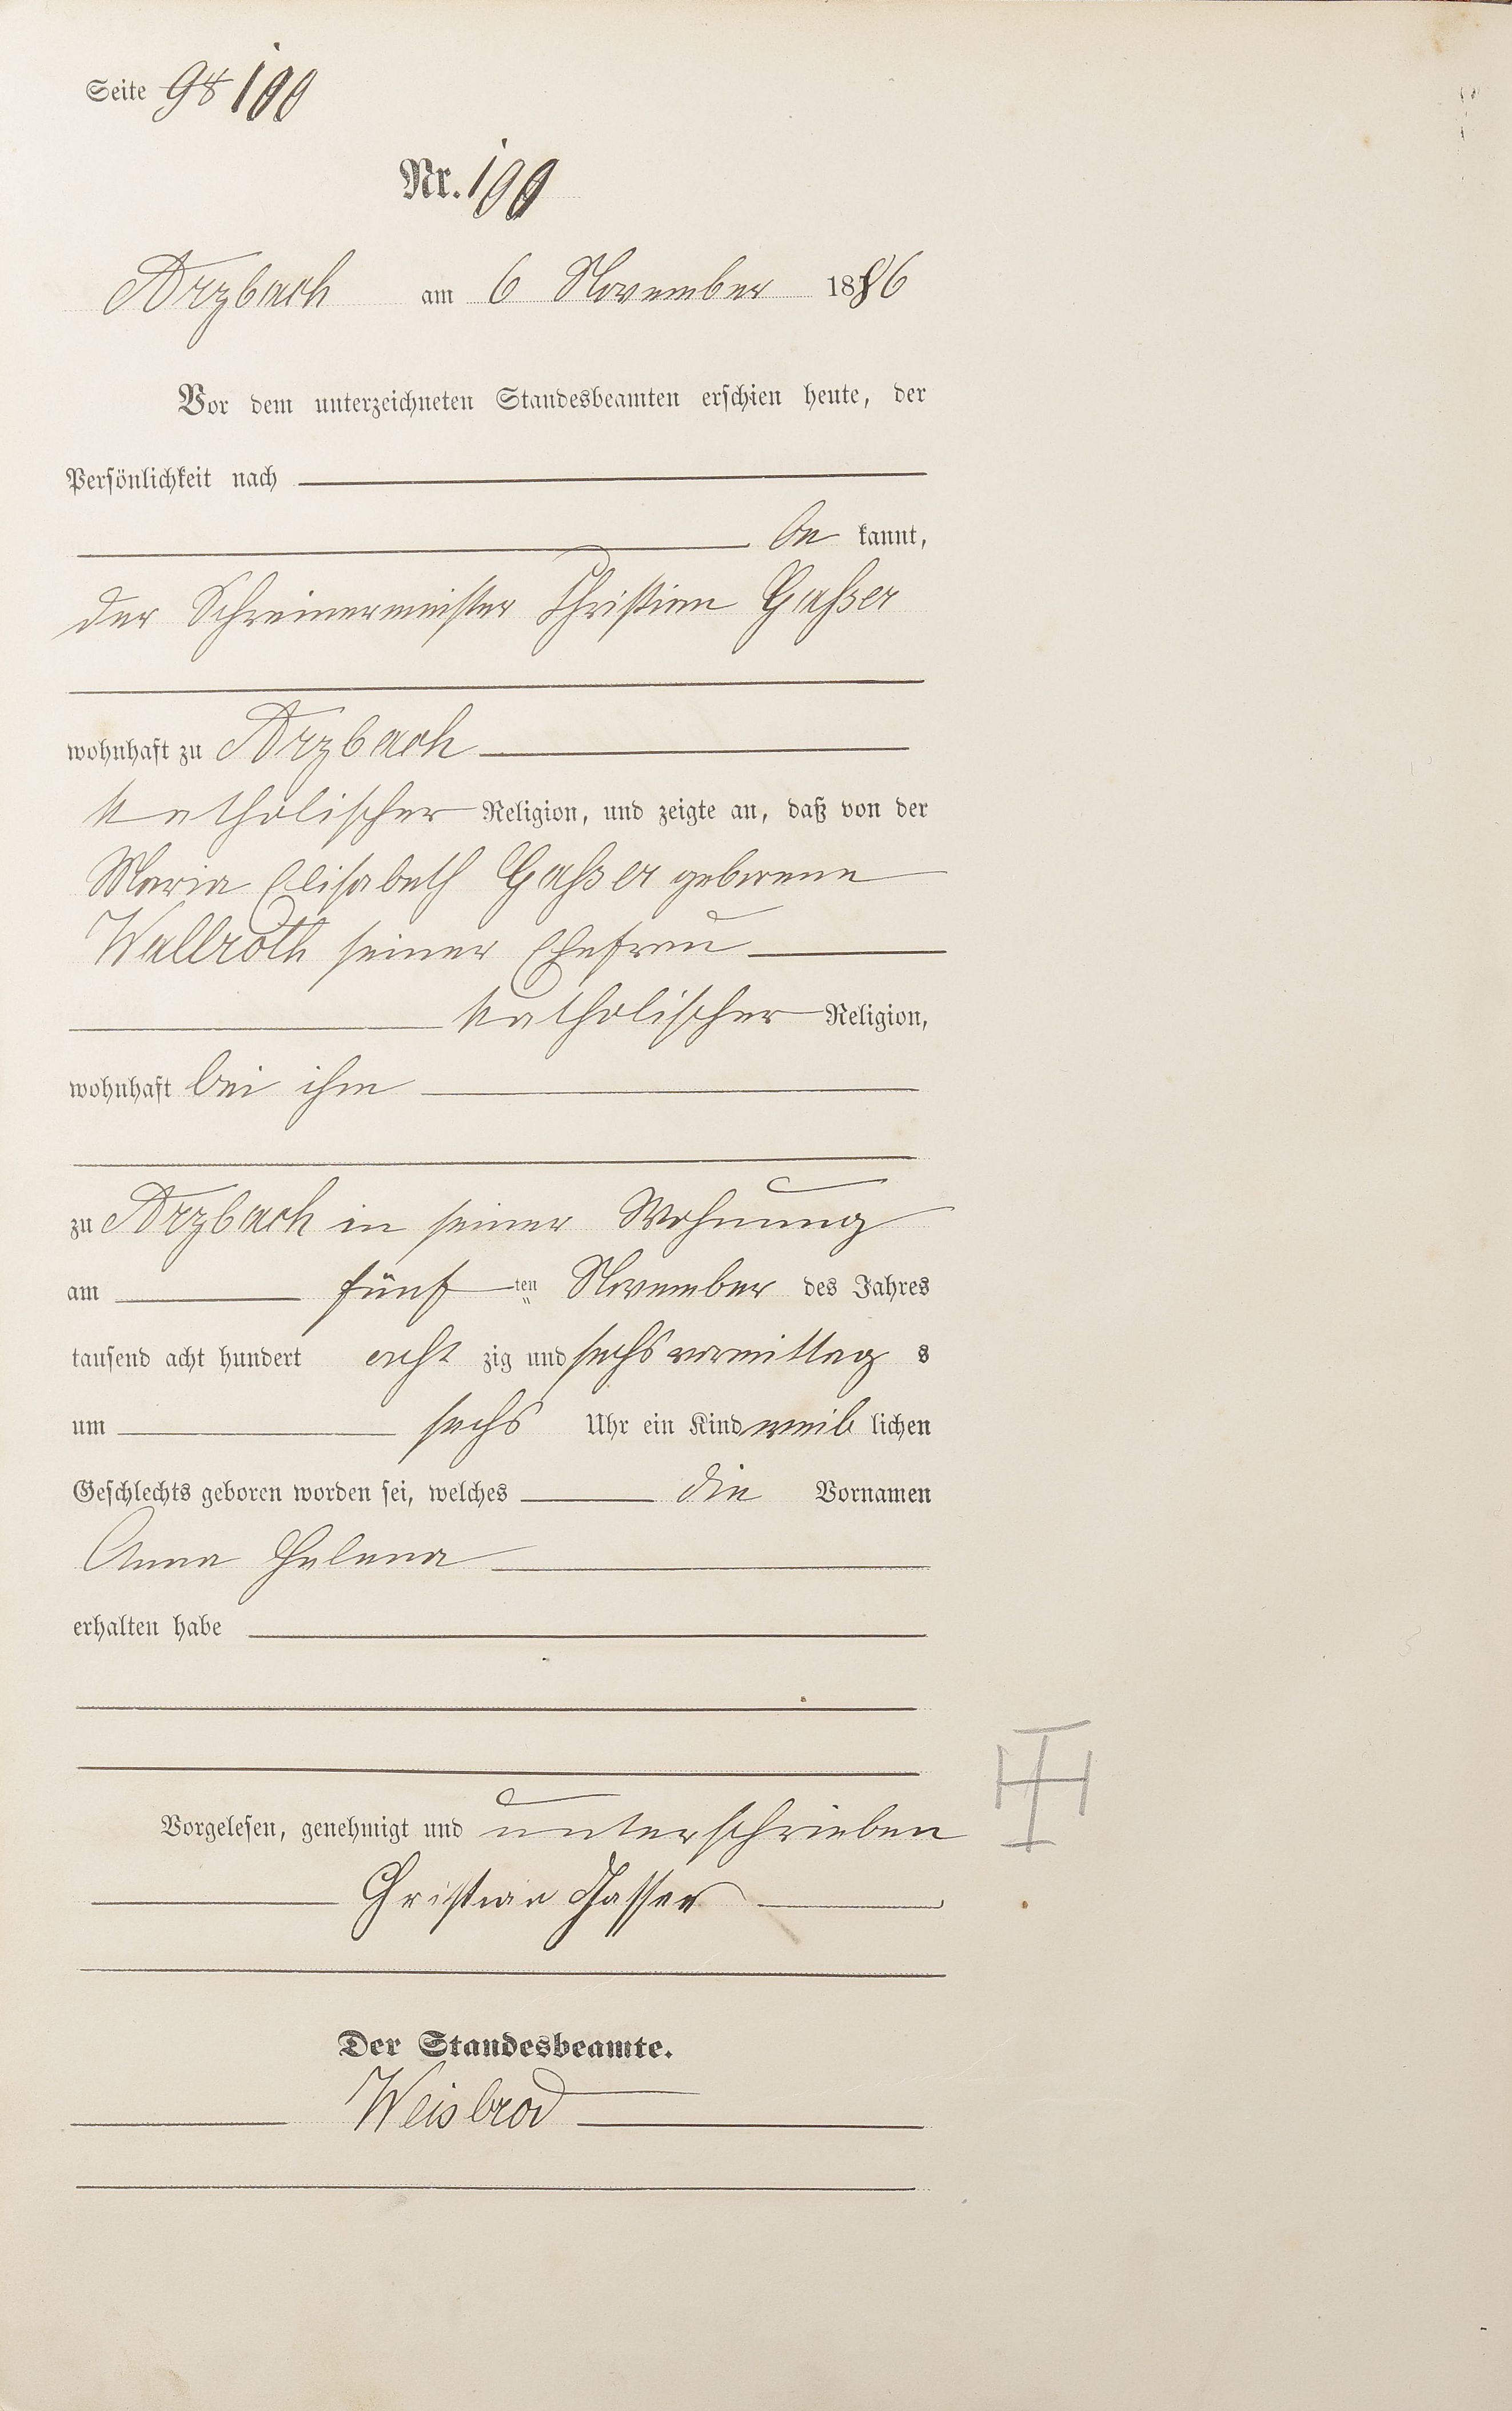 Seite 98 100
Nr. 100
Arzbach am 6 November 1886
Vor dem unterzeichneten Standesbeamten erschien heute, der
Persönlichkeit nach
be kannt,
der Schreinermeister Christian Gaßer
wohnhaft zu Arzbach
katholischer Religion, und zeigte an, daß von der
Maria Elisabeth Gaßer geborene
Wallroth seiner Ehefrau
katholischer Religion,
wohnhaft bei ihm
zu Arzbach in seiner Wohnung
am fünf ten November des Jahres
tausend acht hundert acht zig und sechs vormittag s
um sechs Uhr ein Kind weib lichen
Geschlechts geboren worden sei, welches die Vornamen
Anna Helena
erhalten habe
Vorgelesen, genehmigt und unterschrieben
Christian Gasser
Der Standesbeamte.
Weisbrod